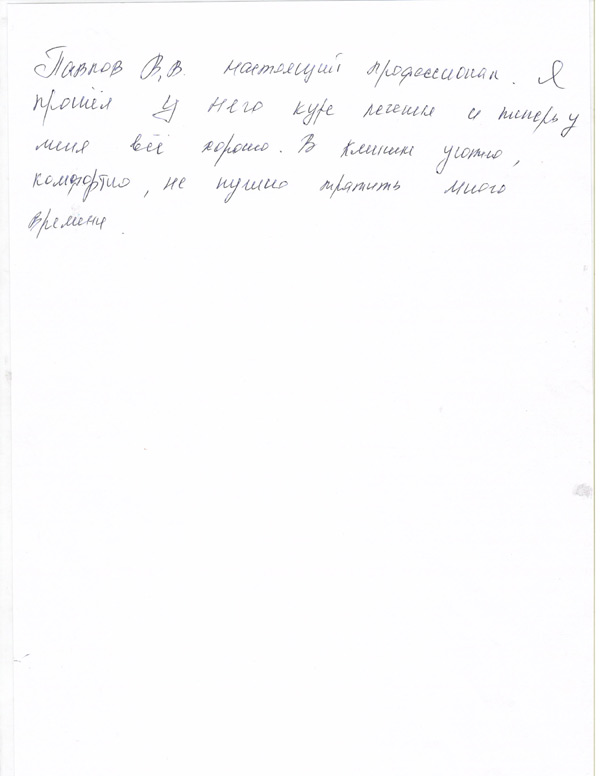 Павлов В.В. настоящий профессионал. Я
прошёл у него курс лечения и теперь у
меня всё хорошо. В клинике уютно,
комфортно, не нужно тратить много
времени.